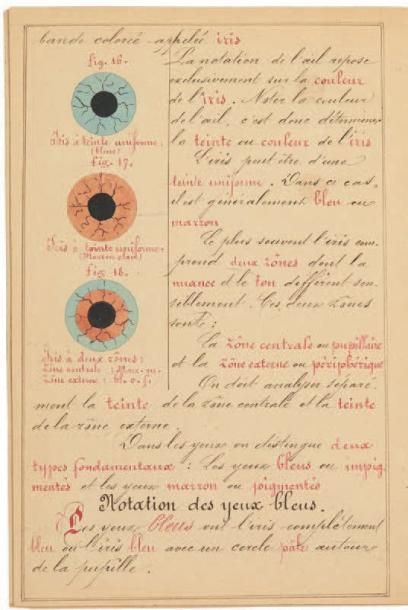 bande colorié appelée iris
fig. 16.
Iris à teinte uniforme:
(bleu)
fig. 17.
Iris à teinte uniforme.
(Marron clair)
fig 18.
Iris à deux zônes:
Zône centrale : Mar. m.
Zône externe : bl.
La notation de l'œil repose
exclusivement sur la couleur
de l'iris. Noter la couleur
de l'œil, c'est donc déterminer
la teinte ou couleur de l'iris
L'iris peut être d'une
teinte uniforme. Dans ce cas,
il est généralement bleu ou
marron
Le plus souvent l'iris com-
prend deux zônes dont la
nuance et le ton diffèrent sen-
siblement. Ces deux zônes
sont:
La zône centrale ou pupillaire
et la zône externe ou périphérique
On doit analyser séparé-
ment la teinte de la zône centrale et la teinte
de la zône externe.
Dans les yeux on distingue deux
types fondamentaux : Les yeux bleus ou impig-
mentés et les yeux marron ou pigmentés
Notation des yeux bleus.
Les yeux bleus ont l'iris complètement
bleu ou l'iris bleu avec un cercle pâle autour
de la pupille.